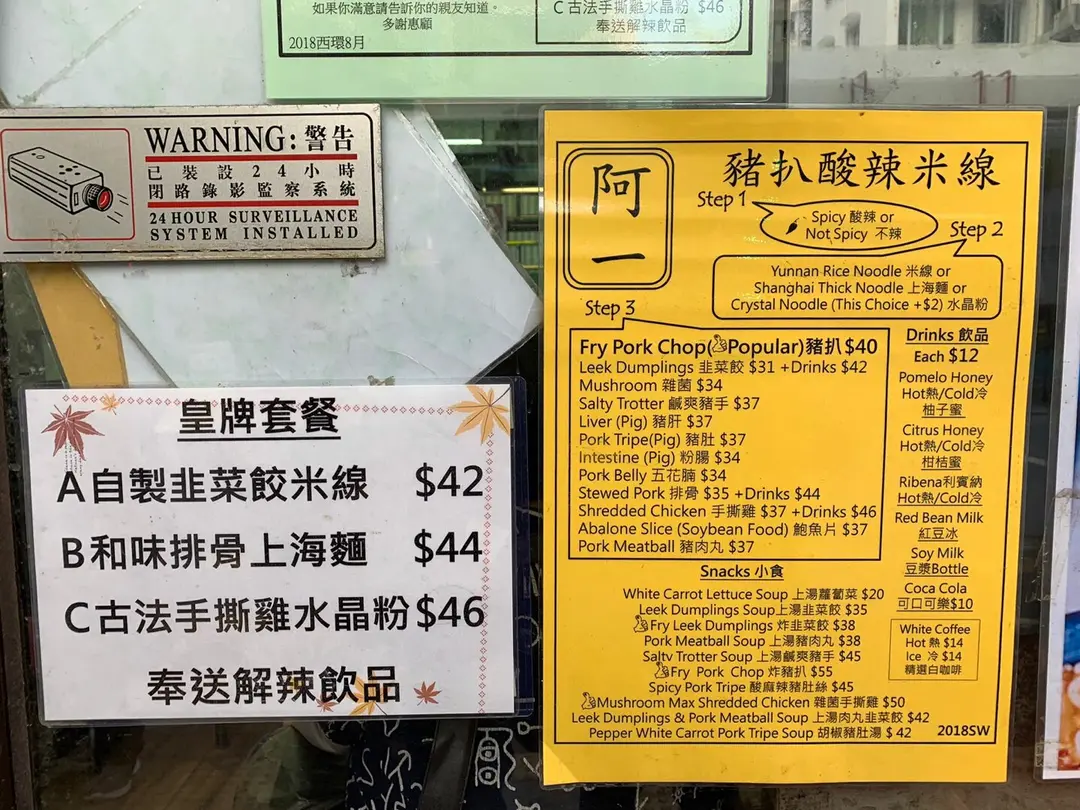 如果你滿意請告訴你的親友知道。
多謝惠顧
2018西環8月
C 古法手撕雞水晶粉 $46
奉送解辣飲品
WARNING: 警告
已裝設24小時
閉路錄影監察系統
24 HOUR SURVEILLANCE
SYSTEM INSTALLED
皇牌套餐
A自製韭菜餃米線 $42
B和味排骨上海麵 $44
C古法手撕雞水晶粉 $46
奉送解辣飲品
阿一
豬扒酸辣米線
Step 1
Spicy 酸辣 or
Not Spicy 不辣
Step 2
Yunnan Rice Noodle 米線 or
Shanghai Thick Noodle 上海麵 or
Crystal Noodle (This Choice +$2) 水晶粉
Step 3
Fry Pork Chop(Popular)豬扒 $40
Leek Dumplings 韭菜餃 $31 +Drinks $42
Mushroom 雜菌 $34
Salty Trotter 鹹爽豬手 $37
Liver (Pig) 豬肝 $37
Pork Tripe(Pig) 豬肚 $37
Intestine (Pig) 粉腸 $34
Pork Belly 五花腩 $34
Stewed Pork 排骨 $35 +Drinks $44
Shredded Chicken 手撕雞 $37 +Drinks $46
Abalone Slice (Soybean Food) 鮑魚片 $37
Pork Meatball 豬肉丸 $37
Drinks 飲品
Each $12
Pomelo Honey
Hot熱/Cold冷
柚子蜜
Citrus Honey
Hot熱/Cold冷
柑桔蜜
Ribena利賓納
Hot熱/Cold冷
Red Bean Milk
紅豆冰
Soy Milk
豆漿Bottle
Coca Cola
可口可樂$10
White Coffee
Hot 熱 $14
Ice 冷 $14
精選白咖啡
Snacks 小食
White Carrot Lettuce Soup 上湯蘿蔔菜 $20
Leek Dumplings Soup上湯韭菜餃 $35
Fry Leek Dumplings 炸韭菜餃 $38
Pork Meatball Soup 上湯豬肉丸 $38
Salty Trotter Soup 上湯鹹爽豬手 $45
Fry Pork Chop 炸豬扒 $55
Spicy Pork Tripe 酸麻辣豬肚絲 $45
Mushroom Max Shredded Chicken 雜菌手撕雞 $50
Leek Dumplings & Pork Meatball Soup 上湯肉丸韭菜餃 $42
Pepper White Carrot Pork Tripe Soup 胡椒豬肚湯 $ 42
2018SW